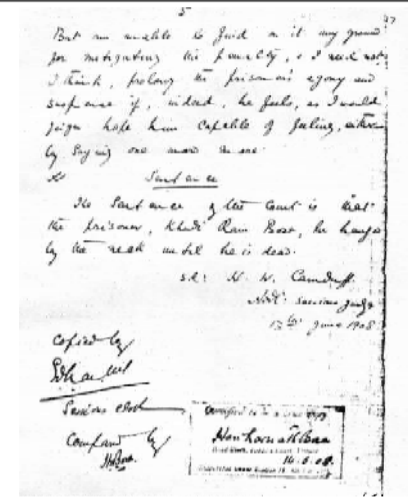 5
But am unable to find in it any ground
for mitigating the penalty, & I need not
I think, prolong the prisoner's agony and
suspense if, indeed, he feels, as I would
hope him capable of feeling, either
by saying one more
Sentence
The Sentence of the Court is that
the prisoner, Khudi Ram Bose, be hanged
by the neck until he is dead.
sd: H. W. Cornduff.
Addl: Sessions Judge
13th June 1908
Copied by
Sessions clerk
Compared by
Certified to be a true copy
14.8.08.